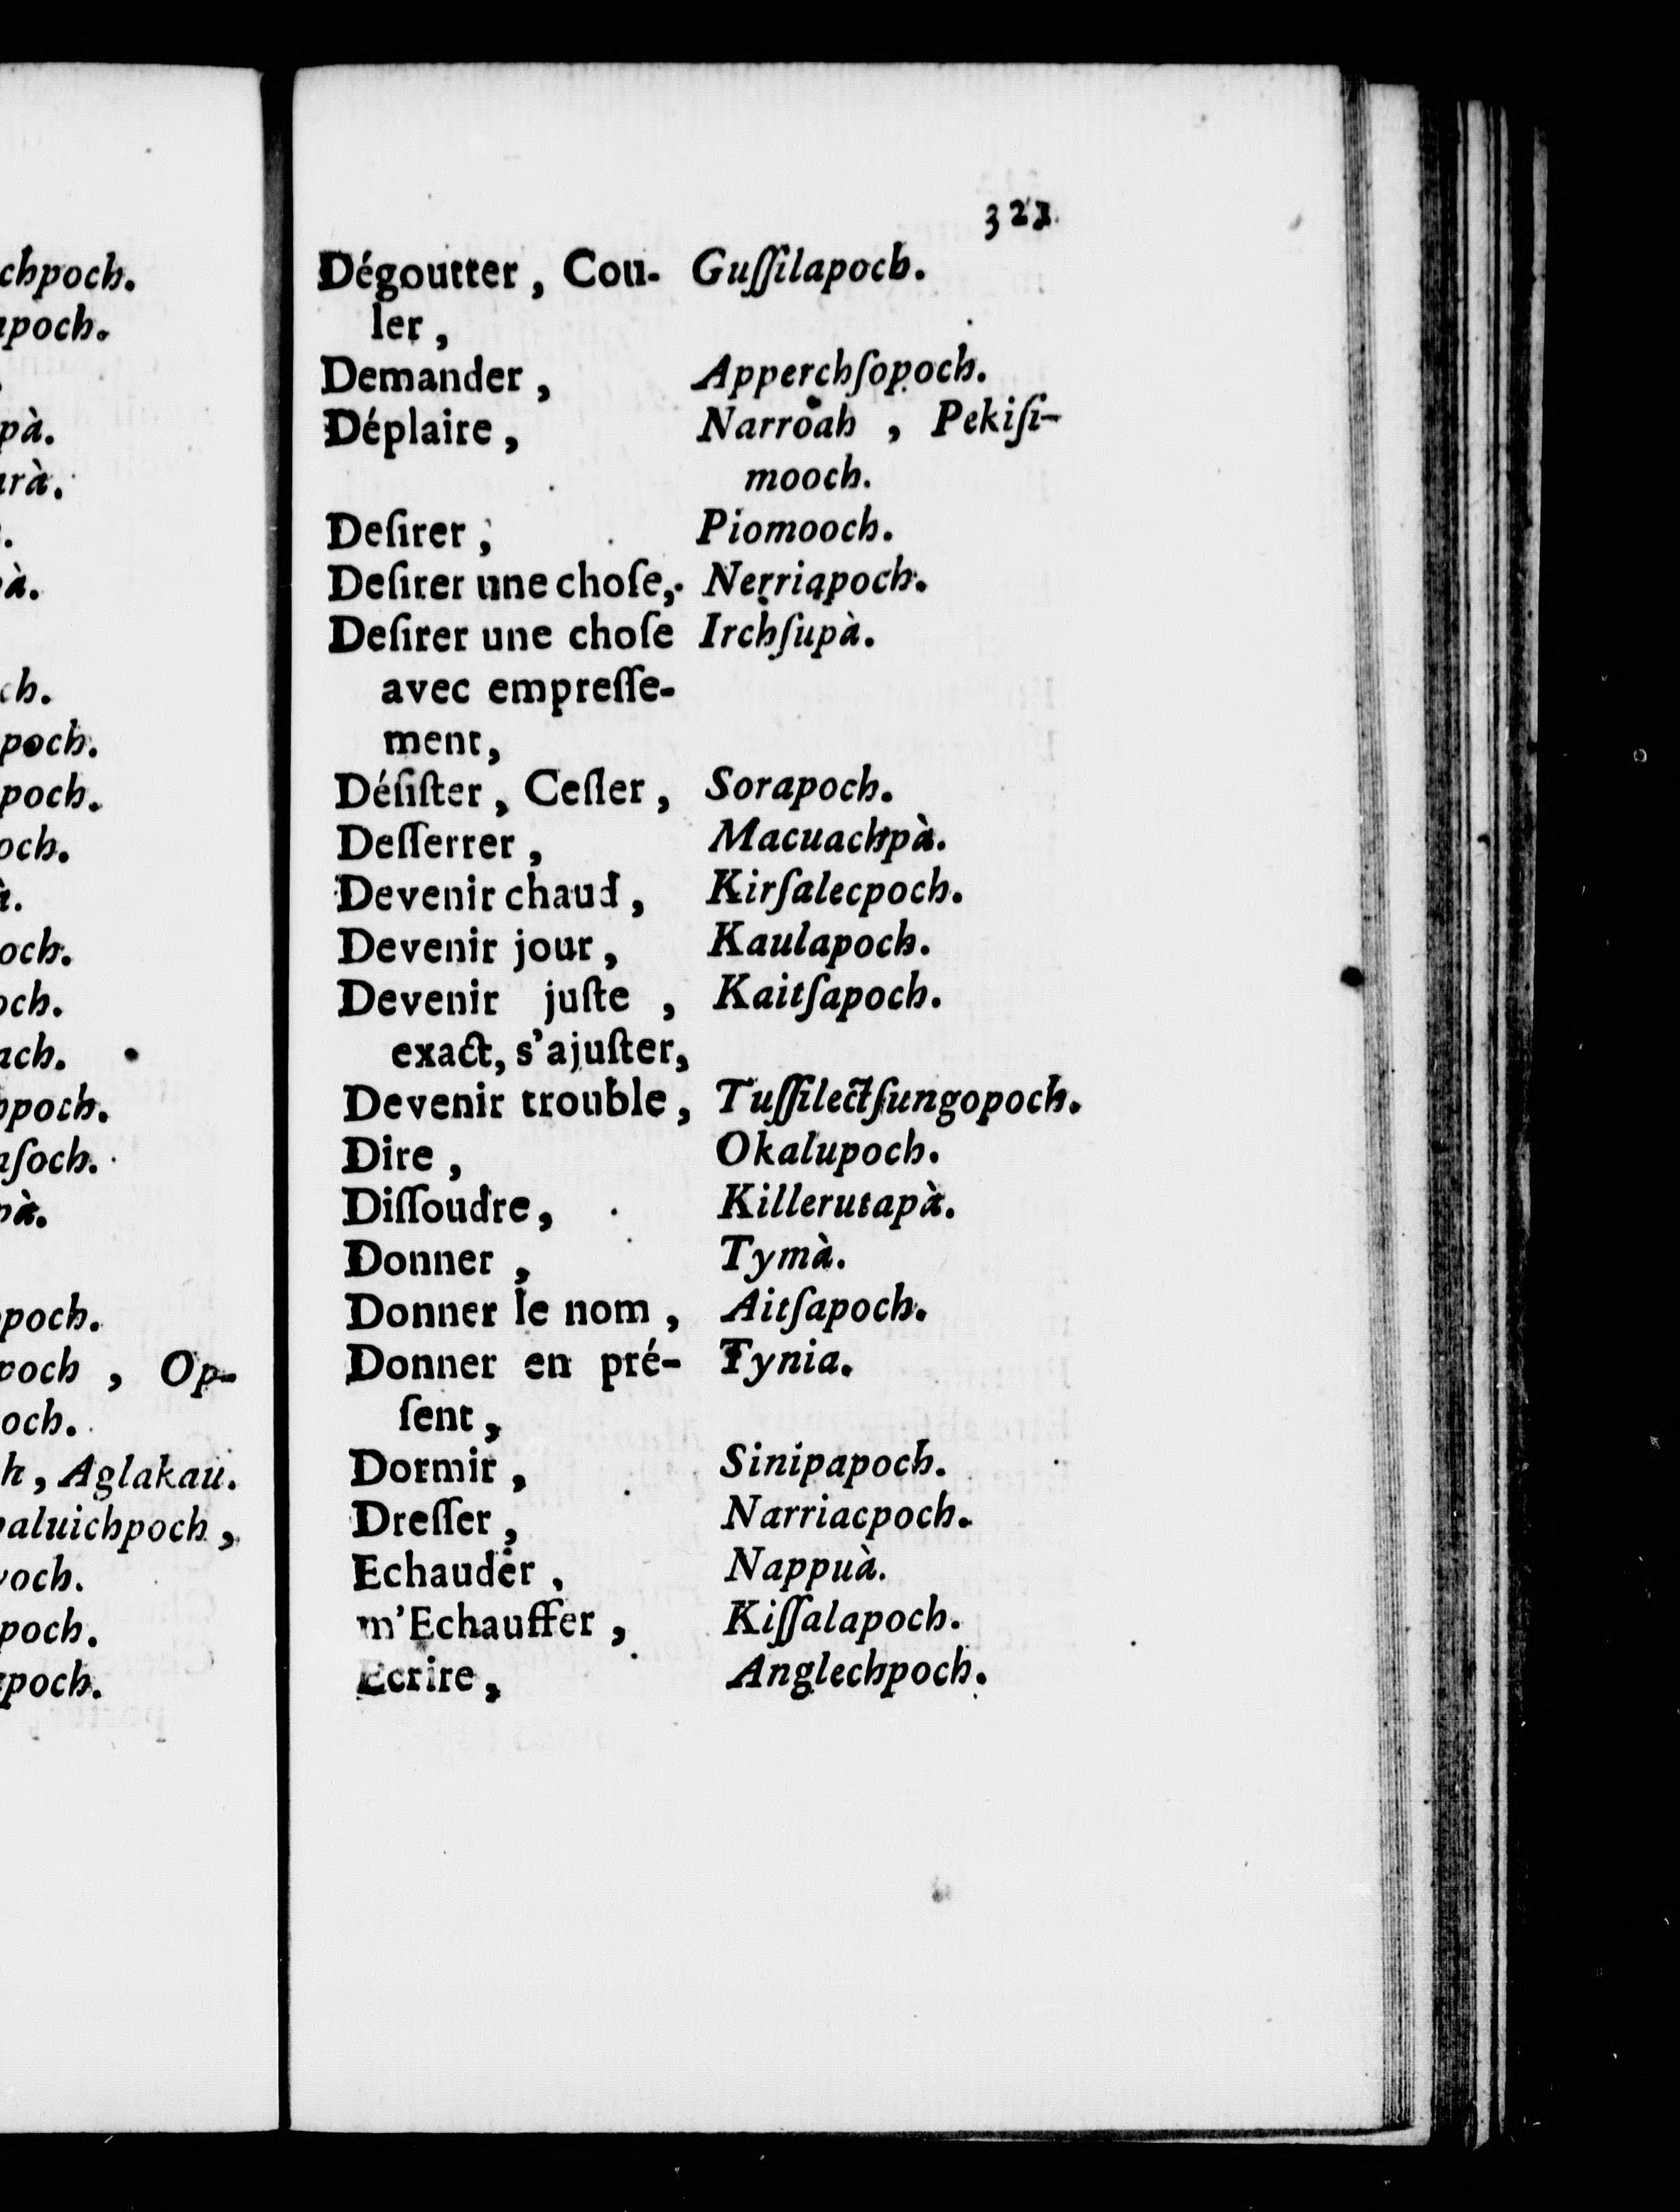 321
Dégoutter, Cou- Guſſilapoch.
ler,
Demander, Apperchſopoch.
Déplaire, Narroah, Pekiſi-
mooch.
Deſirer, Piomooch.
Deſirer une choſe, Nerriapoch.
Deſirer une choſe Irchſupà.
avec empreſſe-
ment,
Déſiſter, Ceſſer, Sorapoch.
Deſſerrer, Macuachpà.
Devenir chaud, Kirſalecpoch.
Devenir jour, Kaulapoch.
Devenir juſte, Kaitſapoch.
exact, s'ajuſter,
Devenir trouble, Tuſſilectſungopoch.
Dire, Okalupoch.
Diſſoudre, Killerutapà.
Donner, Tymà.
Donner le nom, Aitſapoch.
Donner en pré- Tynia.
ſent,
Dormir, Sinipapoch.
Dreſſer, Narriacpoch.
Echauder, Nappuà.
m'Echauffer, Kiſſalapoch.
Ecrire, Anglechpoch.
chpoch.
poch.
pà.
rà.
à.
ch.
poch.
poch.
och.
och.
och.
ach.
poch.
ſoch.
pà.
poch.
poch, Op-
och.
h, Aglakau.
aluichpoch,
och.
poch.
poch.